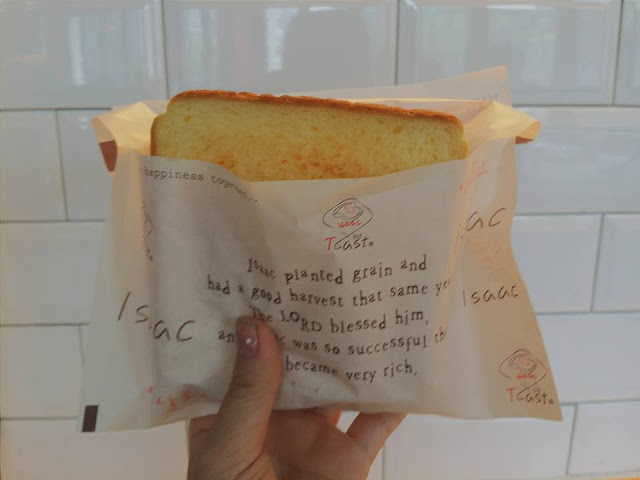 happiness together..
Toast
Isaac planted grain and
had a good harvest that same
The LORD blessed him,
was so successful
became very rich.
Isaac
Isaac
Toast